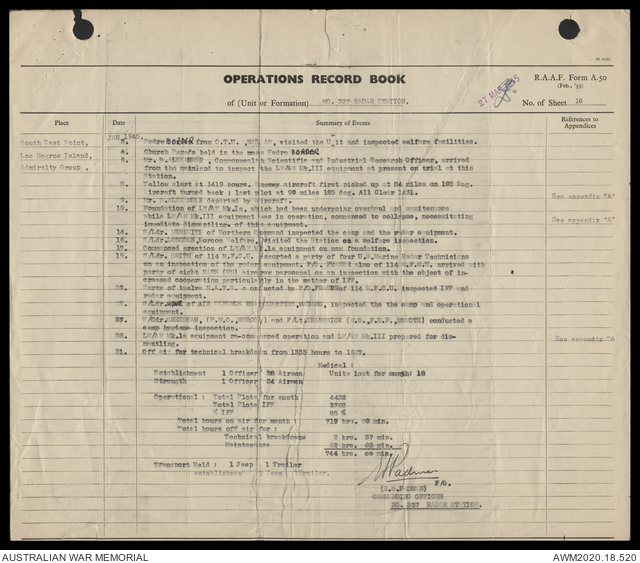 OPERATIONS RECORD BOOK
R.A.A.F. Form A.50
(Feb., '33)
of (Unit or Formation) NO. 337 RADAR STATION.
27 MAR
No. of Sheet 10
Place Date Summary of Events References to Appendices
JAN 1945
South West Point,
Los Negros Island,
Admiralty Group,
3. Padre from O.T.U. visited the Unit and inspected welfare facilities.
4. Church Parade held in the mess Padre
6. Mr. Commonwealth Scientific and Industrial Research Officer, arrived
from the mainland to inspect the LW/AW Mk.III equipment at present on trial at this
Station.
8. Yellow alert at 1419 hours. Enemey aircraft first picked up at 84 miles on 185 deg.
aircraft turned back : last plot at 99 miles 185 deg. All Clear 1431.
See appendix "A"
9. Mr. departed by aircraft.
10. Foundation of LW/AW Mk.1a, which had been undergoing overhaul and
while LW/AW Mk.III equipment was in operation, commenced to collapse, necessitating
immediate dismantling of this equipment.
See appendix "A"
14. S/Ldr. of Northern Command inspected the camp and the radar equipment.
16. S/Ldr. Norcom Welfare, visited the Station on a welfare inspection.
17. Commenced erection of LW/AW Mk.1a equipment on new foundation.
19. S/Ldr. SMITH of 114 M.F.C.U. escorted a party of four U.S. Marine Radar Technicians
on an inspection of the radar equipment. F/O. FRASER also of 114 M.F.C.U. arrived with
party of eight aircrew personnel on an inspection with the object of
creased cooperation particularly in the matter of IFF.
Party of twelve conducted by F/O. FRASER of 114 M.F.C.U. inspected IFF and
radar equipment.
S/Ldr. of AIR DEFENCE HEADQUARTERS, MADANG, inspected the the camp and operational
equipment.
27. and F/Lt. conducted a
camp hygiene inspection.
28. LW/AW Mk.1a equipment re-commenced operation and LW/AW Mk.III prepared for dis-
mantling.
See appendix "A
31. Off air for technical breakdown from 1353 hours to 1627.
Medical :
Establishment 1 Officer 28 Airmen Units lost for month: 18
Strength 1 Officer 24 Airmen
Operational : Total Plots for month 4432
Total Plots IFF 3762
% IFF 85 %
Total hours on air for month : 719 hrs. 20 min.
Total hours off air for :
Technical breakdowns 2 hrs. 37 min.
Maintenance 22 hrs. 03 min.
744 hrs. 00 min.
Transport Held : 1 Jeep 1 Trailer
establishment 1 Jeep 1 Trailer.
F/O.
COMMANDING OFFICER
NO. 337 RADAR STATION.
AUSTRALIAN WAR MEMORIAL
AWM2020.18.520